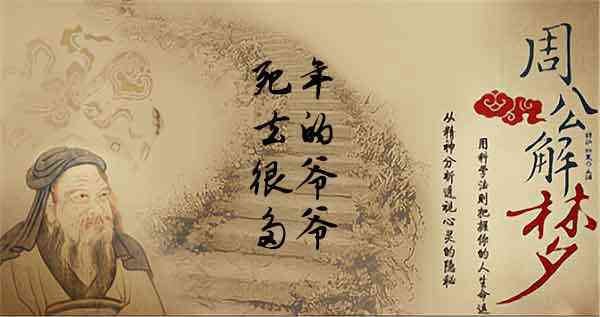 死去很多
年的爷爷
周公解梦
用科学法则把握你的人生命运
从精神分析透视心灵的隐秘